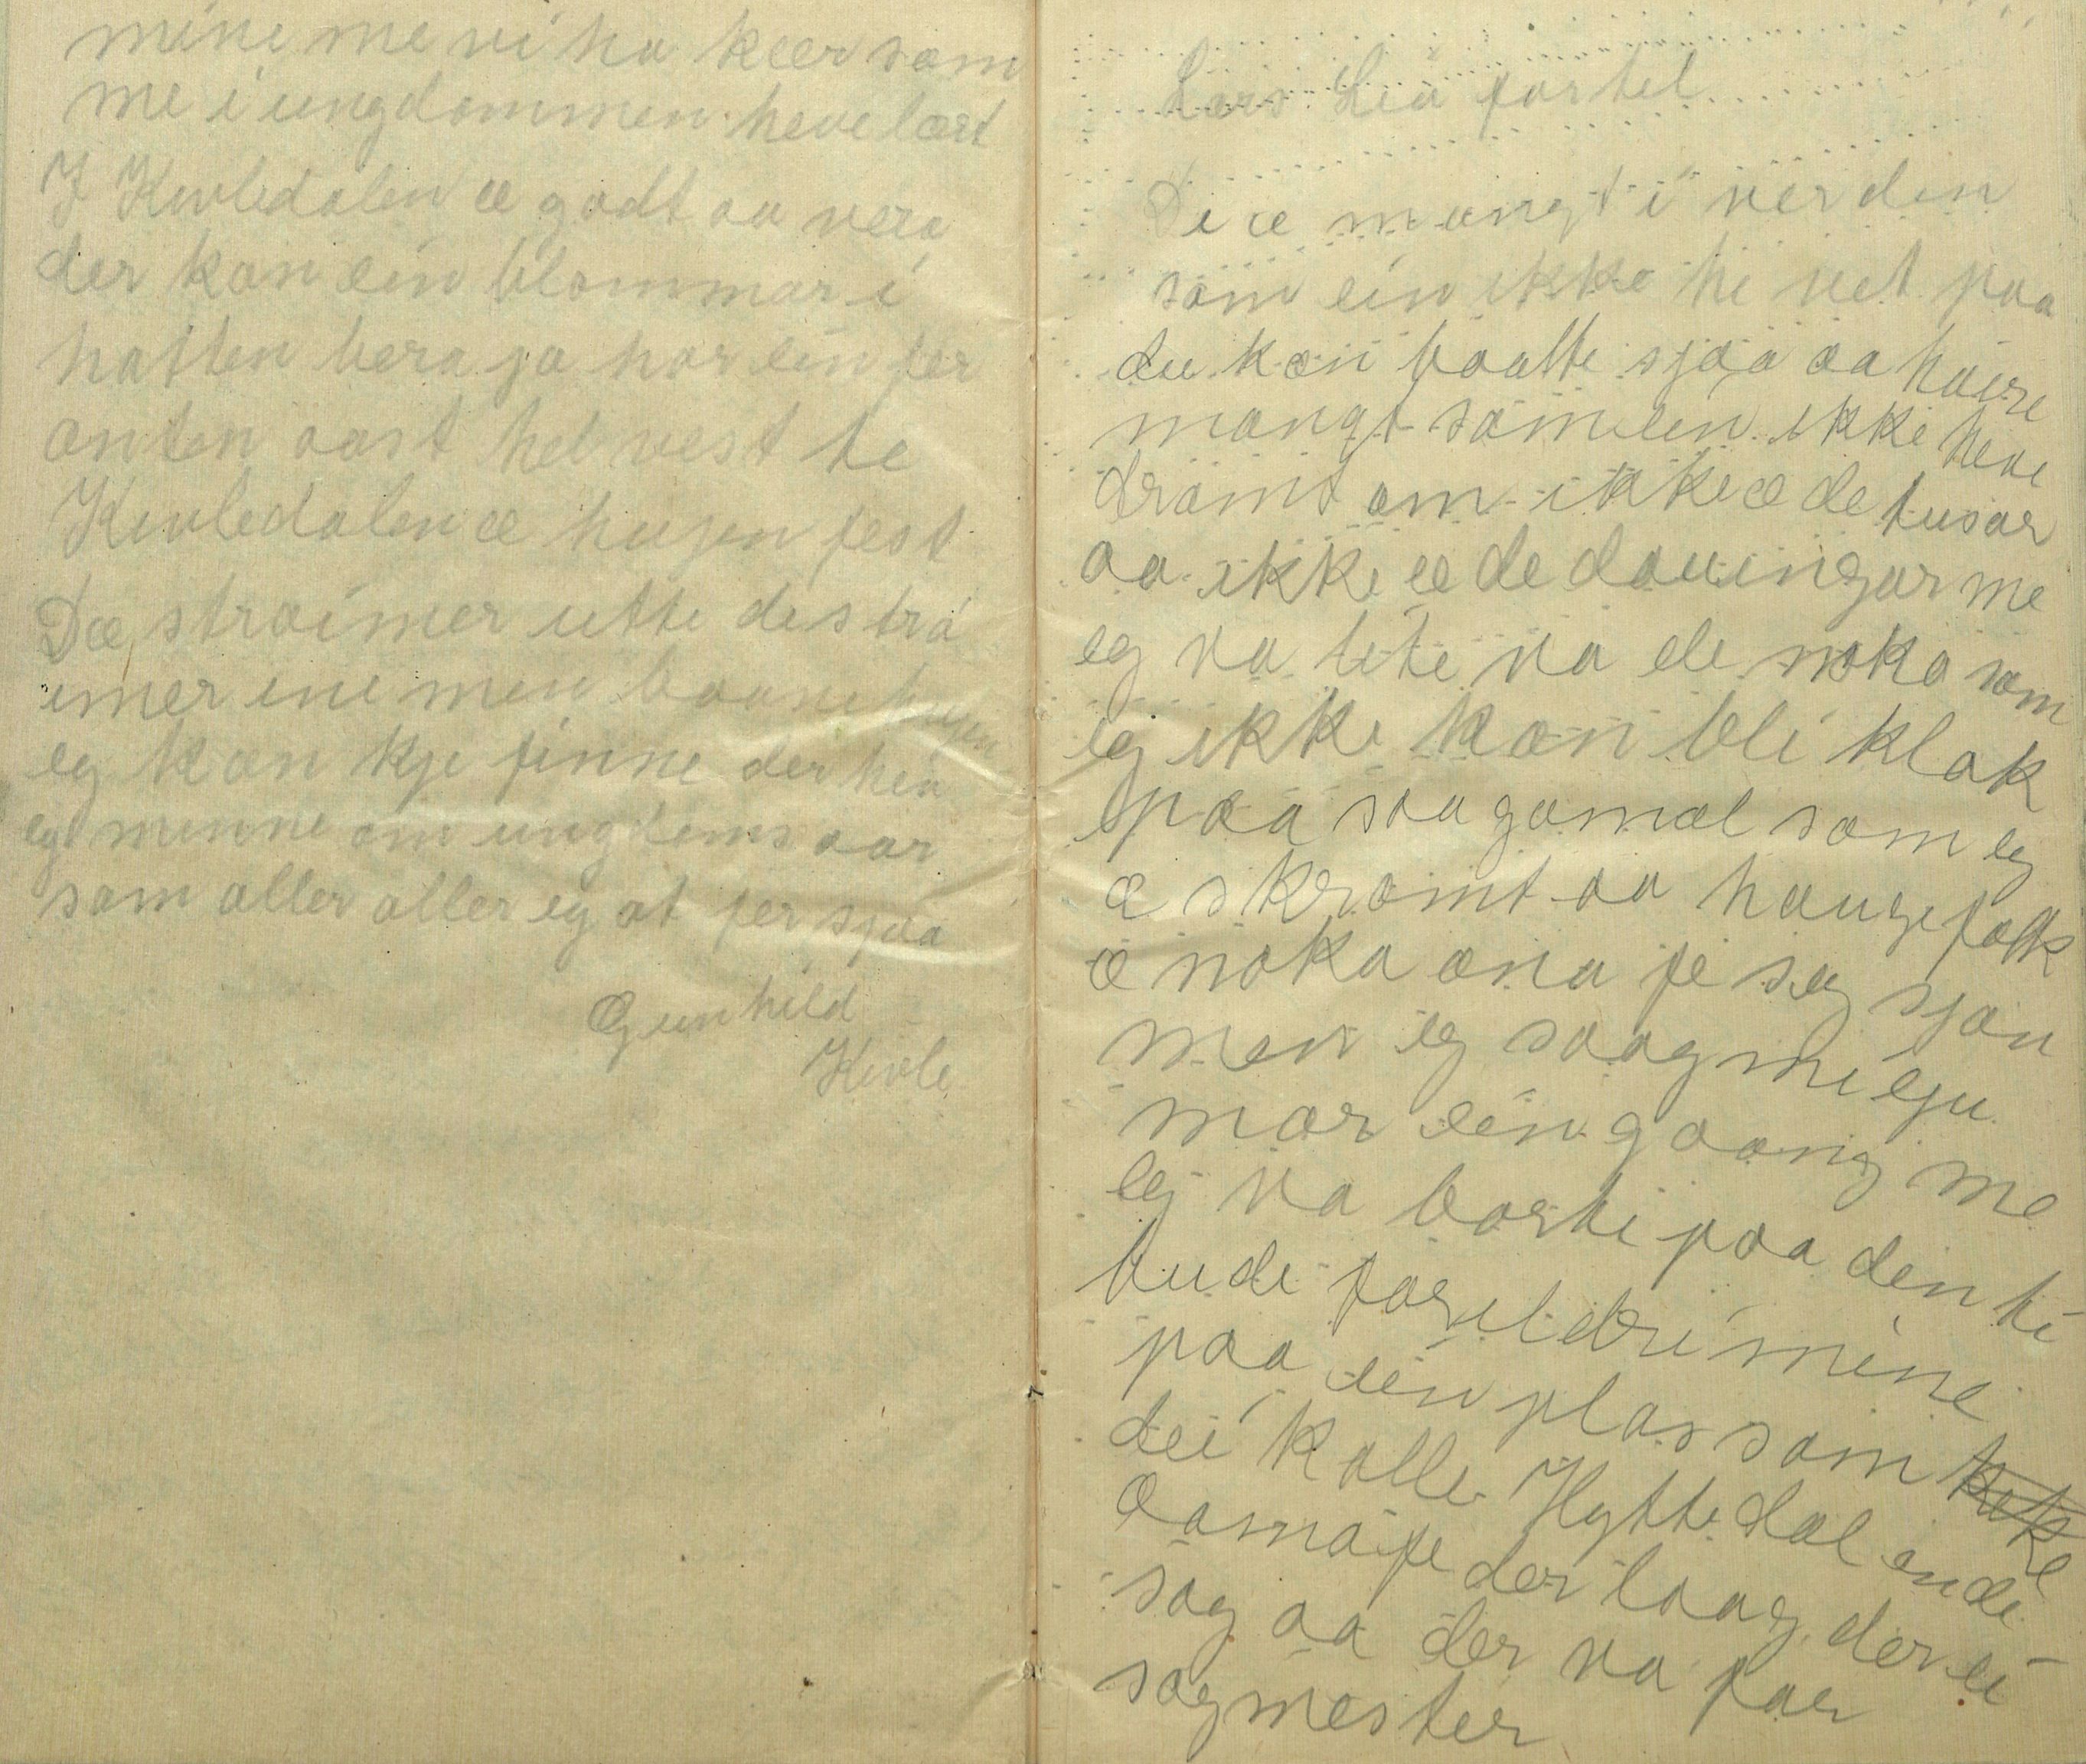 mine me vi ha kær som
me i ungdommen heve lært
I Kivledalen æ godt aa vera
der kan ein blommar i
hatten bera ja har ein fer
anten aast hel vest te
Kivledalen æ hugen fest
Dæ strøimer utte de strø
imer ine men baane hugen
eg kan kje finne der hen
eg minne om ungdoms aar
som aller aller eg at fer sjaa
Gunhild
Kivle
Lars Lia fortel
De æ mangt i verden
som ein ikke hi vet paa
du kan baatte sjaa aa høire
mangt som ein ikke heve
drømt om ikke æ de tusar
aa ikke æ de dauingar me
eg va lite va de noka som
eg ikke kan bli klok
paa saa gamal som eg
æ skrømt aa haugefolk
æ noka ana fe seg sjøu
men eg saag mi eju
mor ein gaang me
eg va borte paa den ti
bude foreldri mine
paa ein plas som
dei kalle Hyttedal ende
Aamofe der laag der ei
sag aa der va far
sagmester